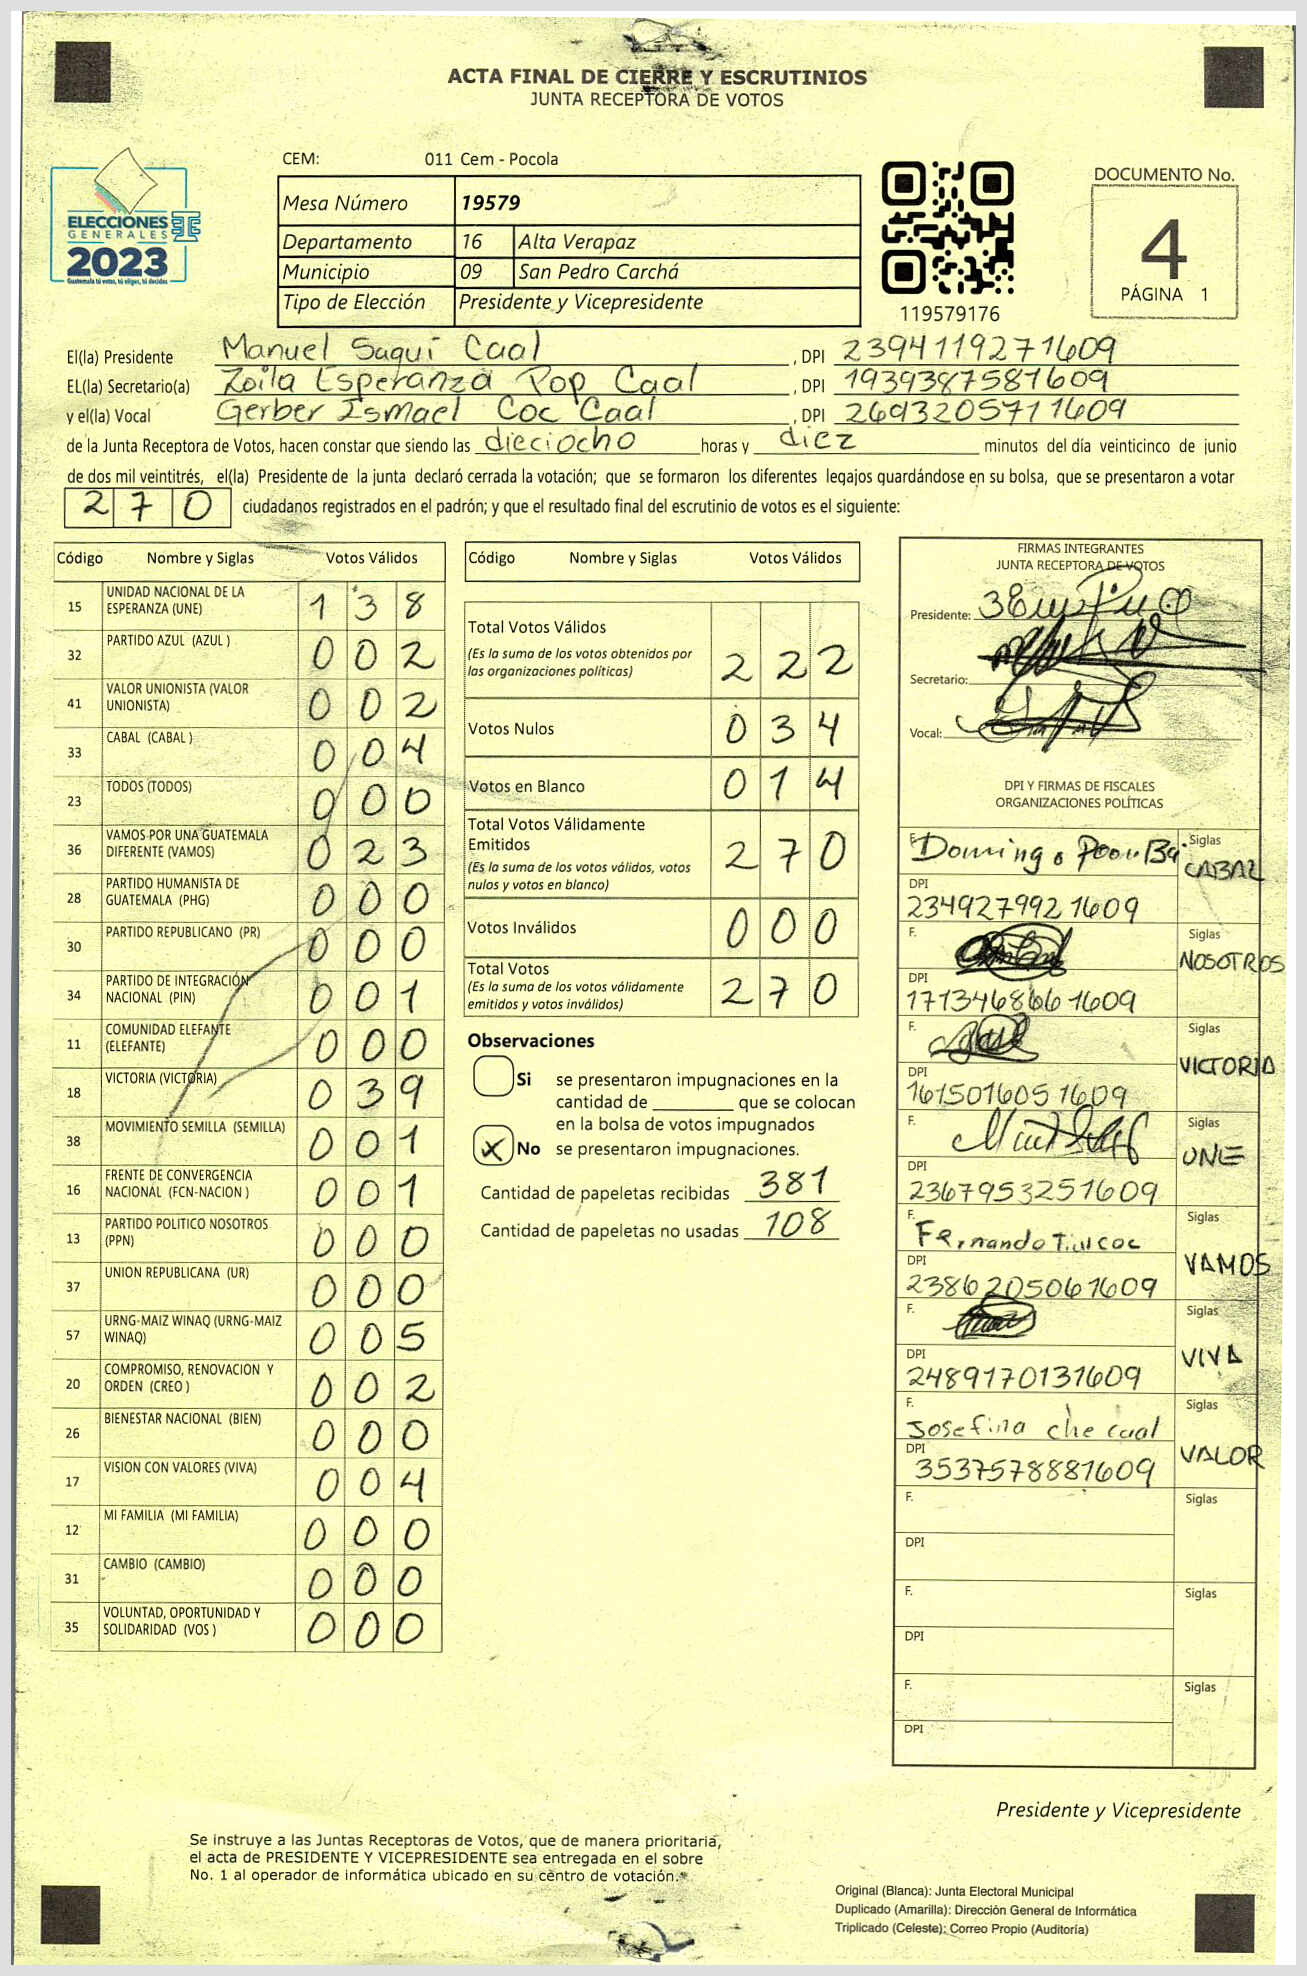 ACTA FINAL DE CIERRE Y ESCRUTINIOS
JUNTA RECEPTORA DE VOTOS
CEM: 011 Cem - Pocola
ELECCIONES
GENERALES
2023
Guatemala tú votas, tú eliges, tú decides
Mesa Número 19579
Departamento 16 Alta Verapaz
Municipio 09 San Pedro Carchá
Tipo de Elección Presidente y Vicepresidente
119579176
DOCUMENTO No.
4
PÁGINA 1
El(la) Presidente Manuel Saqui Caal, DPI 2394119271609
EL(la) Secretario(a) Zoila Esperanza Pop Caal, DPI 1939387581609
y el(la) Vocal Gerber Ismael Coc Caal, DPI 2693205711609
de la Junta Receptora de Votos, hacen constar que siendo las dieciocho horas y diez minutos del día veinticinco de junio
de dos mil veintitrés, el(la) Presidente de la junta declaró cerrada la votación; que se formaron los diferentes legajos guardándose en su bolsa, que se presentaron a votar
270 ciudadanos registrados en el padrón; y que el resultado final del escrutinio de votos es el siguiente:
Código Nombre y Siglas Votos Válidos
15 UNIDAD NACIONAL DE LA ESPERANZA (UNE) 138
32 PARTIDO AZUL (AZUL ) 002
41 VALOR UNIONISTA (VALOR UNIONISTA) 002
33 CABAL (CABAL ) 004
23 TODOS (TODOS) 000
36 VAMOS POR UNA GUATEMALA DIFERENTE (VAMOS) 023
28 PARTIDO HUMANISTA DE GUATEMALA (PHG) 000
30 PARTIDO REPUBLICANO (PR) 000
34 PARTIDO DE INTEGRACIÓN NACIONAL (PIN) 001
11 COMUNIDAD ELEFANTE (ELEFANTE) 000
18 VICTORIA (VICTORIA) 039
38 MOVIMIENTO SEMILLA (SEMILLA) 001
16 FRENTE DE CONVERGENCIA NACIONAL (FCN-NACION ) 001
13 PARTIDO POLITICO NOSOTROS (PPN) 000
37 UNION REPUBLICANA (UR) 000
57 URNG-MAIZ WINAQ (URNG-MAIZ WINAQ) 005
20 COMPROMISO, RENOVACION Y ORDEN (CREO ) 002
26 BIENESTAR NACIONAL (BIEN) 000
17 VISION CON VALORES (VIVA) 004
12 MI FAMILIA (MI FAMILIA) 000
31 CAMBIO (CAMBIO) 000
35 VOLUNTAD, OPORTUNIDAD Y SOLIDARIDAD (VOS ) 000
Código Nombre y Siglas Votos Válidos
Total Votos Válidos
(Es la suma de los votos obtenidos por
las organizaciones políticas) 222
Votos Nulos 034
Votos en Blanco 014
Total Votos Válidamente
Emitidos
(Es la suma de los votos válidos, votos
nulos y votos en blanco) 270
Votos Inválidos 000
Total Votos
(Es la suma de los votos válidamente
emitidos y votos inválidos) 270
Observaciones
Si se presentaron impugnaciones en la
cantidad de ________ que se colocan
en la bolsa de votos impugnados
X No se presentaron impugnaciones.
Cantidad de papeletas recibidas 381
Cantidad de papeletas no usadas 108
FIRMAS INTEGRANTES
JUNTA RECEPTORA DE VOTOS
Presidente:
Secretario:
Vocal:
DPI Y FIRMAS DE FISCALES
ORGANIZACIONES POLÍTICAS
F. Domingo Siglas CABAL
DPI 2349279921609
F. Siglas NOSOTROS
DPI 1713468661609
F. Siglas VICTORIA
DPI 1615016051609
F. Siglas UNE
DPI 2367953251609
F. Fernando Siglas VAMOS
DPI 2386205061609
F. Siglas VIVA
DPI 2489170131609
F. Josefina che caal Siglas VALOR
DPI 3537578881609
F. Siglas
DPI
F. Siglas
DPI
F. Siglas
DPI
Presidente y Vicepresidente
Se instruye a las Juntas Receptoras de Votos, que de manera prioritaria,
el acta de PRESIDENTE Y VICEPRESIDENTE sea entregada en el sobre
No. 1 al operador de informática ubicado en su centro de votación.
Original (Blanca): Junta Electoral Municipal
Duplicado (Amarilla): Dirección General de Informática
Triplicado (Celeste): Correo Propio (Auditoría)